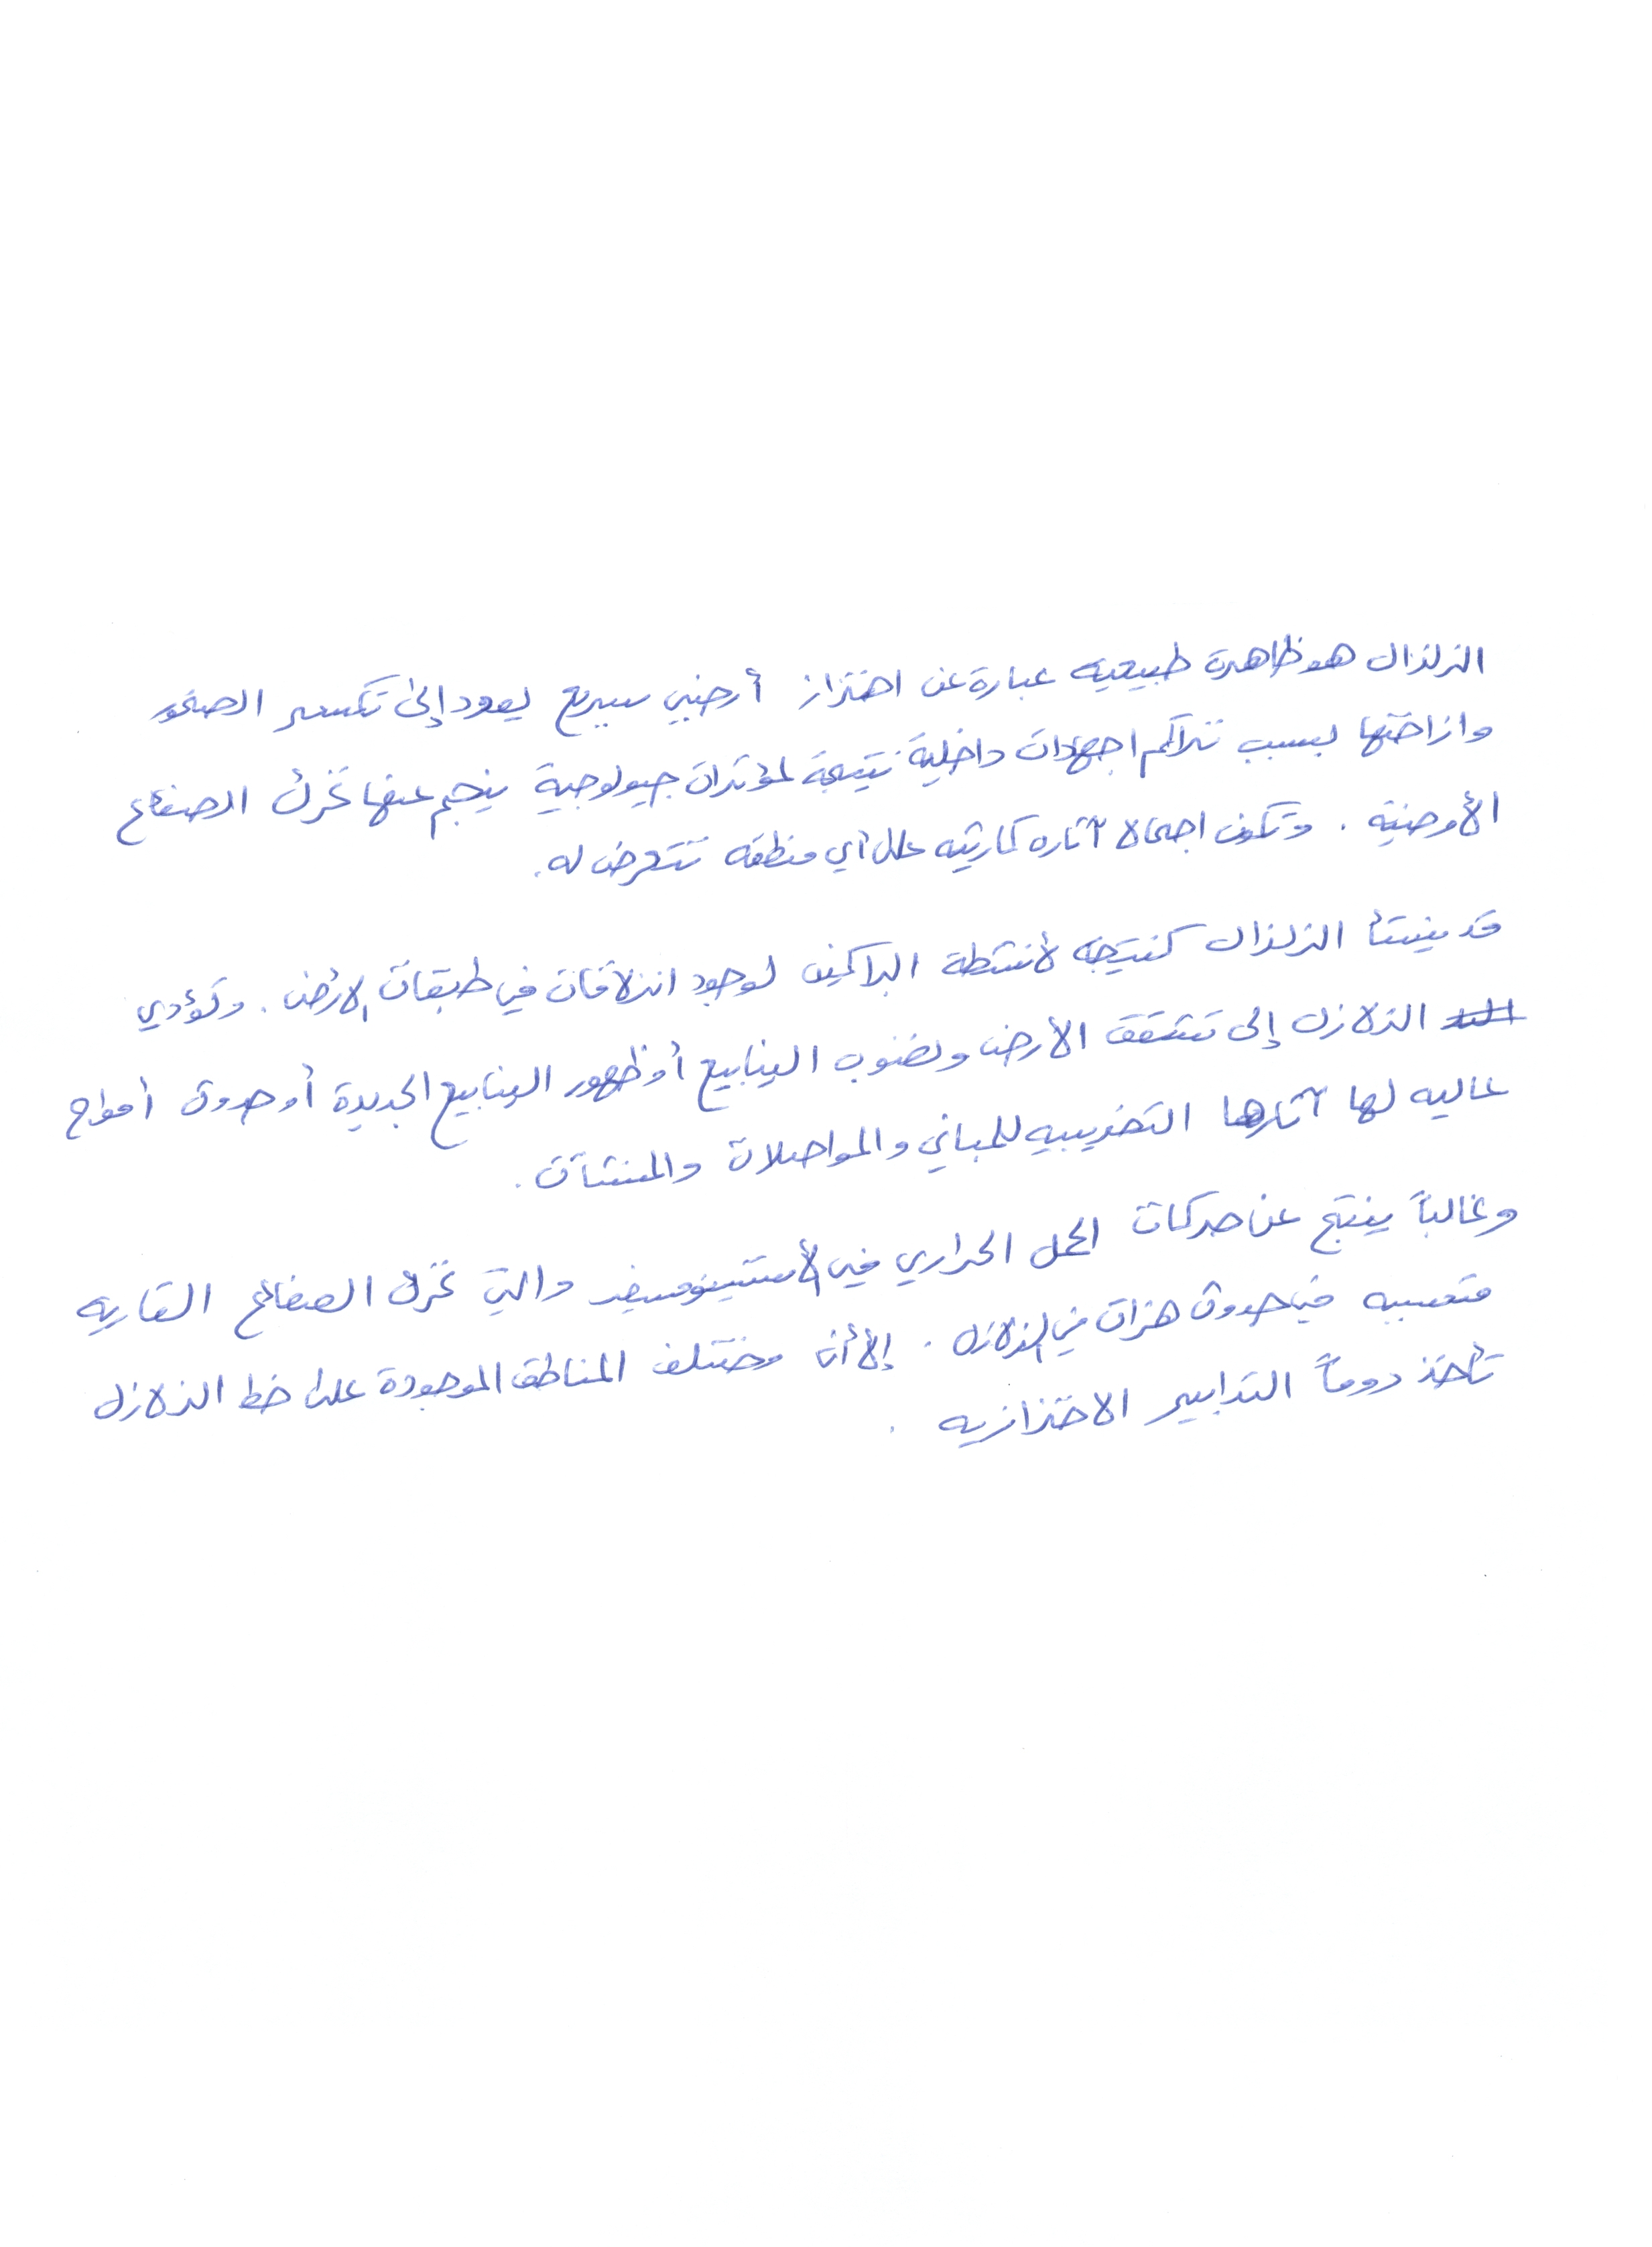 الزلزال هو ظاهرة طبيعيه عبارة عن اهتزاز أرضي سريع يعود إلى تكسير الصخور
وازاحتها بسبب تراكم اجهادات داخلية نتيجة لمؤثرات جيولوجية ينجم عنها تحرك الصفائح
الأرضية . وتكون اجمالا آثاره كارثيه على أي منطقه تتعرض له .
قد ينشأ الزلزال كنتيجه لأنشطة البراكين لوجود انزلاقات في طبقات الارض . وتؤدي
الزلازل إلى تشقق الأرض ونضوب الينابيع أو ظهور الينابيع الجديدة أو حدوث أمواج
عاليه لها آثارها التخريبيه للمباني والمواصلات والمنشآت .
وغالباً ينتج عن حركات الحمل الحراري في والتي تحرك الصفائح القاريه
متسببه في حدوث هزات في الزلازل . إلا أن مختلف المناطق الموجودة على خط الزلازل
تأخذ دوماً التدابير الاحترازيه .